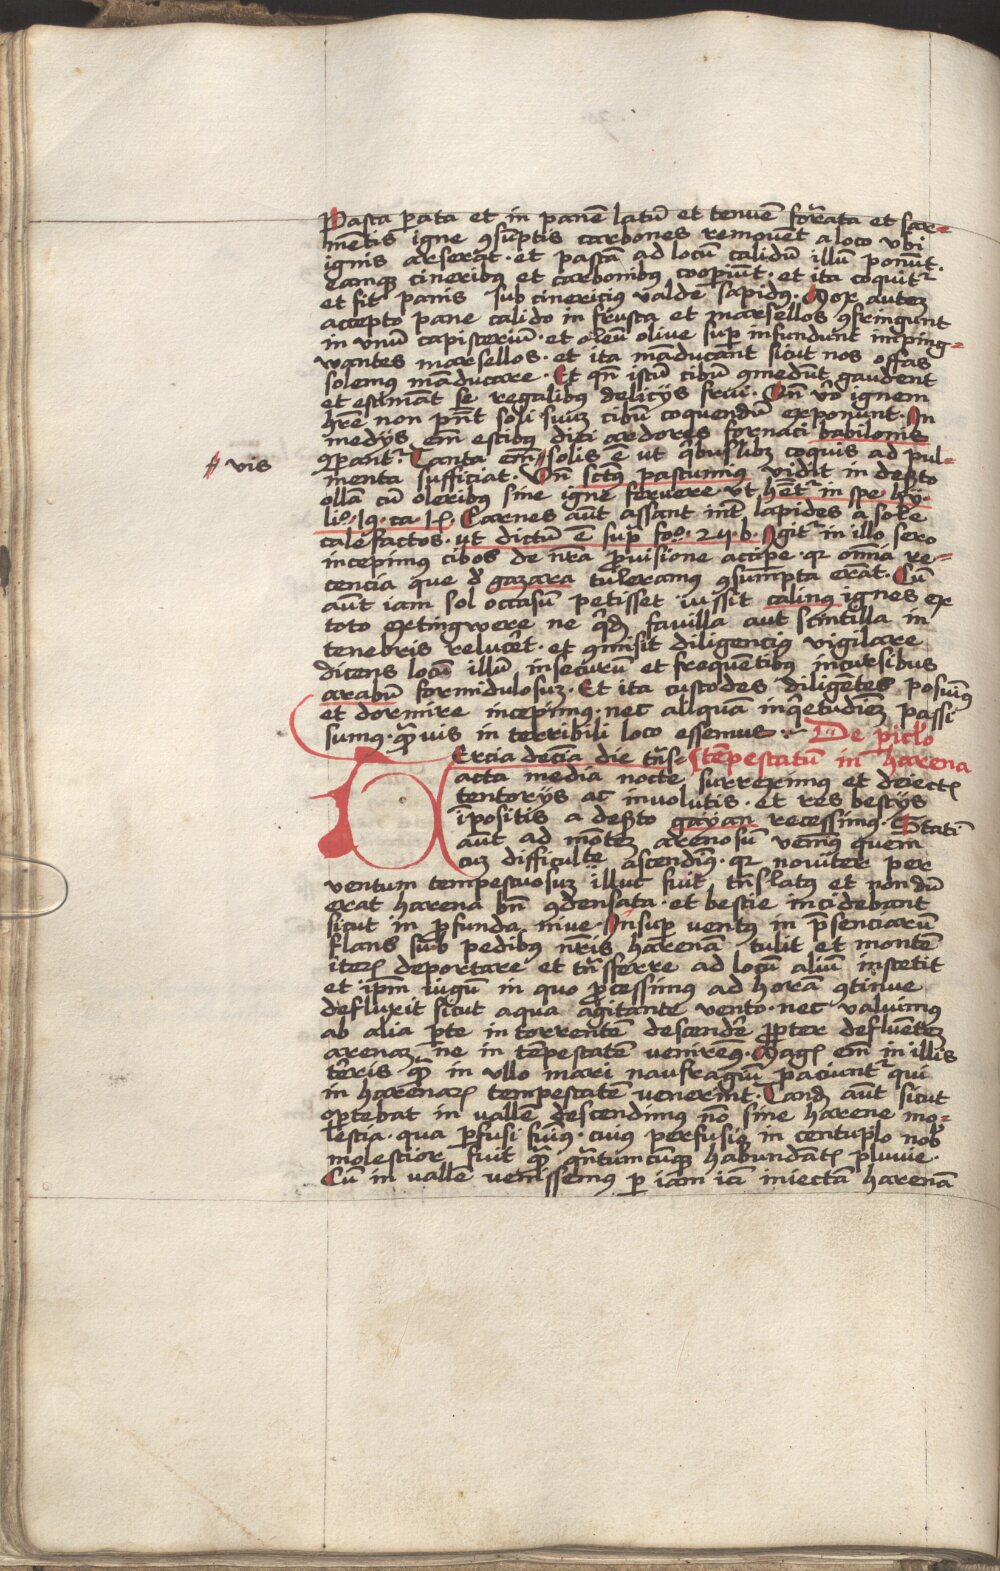 Pasta p̲ata et in panē latū et tenuē formata et sar=
mētis igne ꝯsūptis carbones removēt a loco vbi
ignis arserat · et pastā ad locū calidū illū ponūt ·
eamqꝫ cineribꝰ et carbonibꝰ coopiūt · et ita coquit᷑
et fit panis subcinericiꝰ valde sapidꝰ · Mox autem
accepto pane calido in frusta et marsellos ꝯfringunt
in vnū capisteriū · et oleū olive sup infundunt imping=
wantes marsellos · et ita māducant sicut nos offas
solemꝰ māducare · Et qn̄ istū cibū ꝯmedūt gaudent
et estimāt se regalibꝰ delicijs frui · Qn̄ v̄o ignem
hr̄e non pn̄t soli suū cibū coquendū exponunt · In
medijs em̄ estibꝰ diei ardores fornaci babilonis
ꝯpant᷑ · Tanta em̄ # solis ē ut qͥbuslibꝫ coquis ad pul=
# vis
menta sufficiat · Vn̄ sctꝰ pastumiꝰ vidit in deßto
ollā cū oleribꝰ sine igne fervere vt hēt᷑ in spe hy ·
li° · 19 · ca · lx · Carnes aūt assant int̄ lapides a sole
calefactos · ut dictū ē sup̄ fo° · 24 · b · Igit᷑ in illo sero
incepimꝰ cibos de nr̄a provisione accipe · qꝛ om̄ia re=
cencia que d̄ gazara tuleramꝰ ꝯsumpta erāt · Cū
aūt iam sol occasū petisset iussit calinꝰ ignes ex
toto extingwere ne qͥd favilla aut scintilla in
tenebris relucēt · et ꝯmisit diligenciꝰ vigilare
dicens locū illū insecurū et frequētibꝰ incursibus
arabū formidulosum · Et ita custodes diligētes posuimꝰ
et dormire incepimꝰ · nec aliquā inqͥetudinē passi
sumꝰ · qͣm̄vis in terribili loco essemus ·
De piclo
Ercia decīa die trās=
tēpestatū in harena
acta media nocte surreximus et deiectꝭ
tentorijs ac involutis · et res bestijs
īpositis a deßto gayan recessimus · Statī
aūt ad mōtem arenosū venimꝰ quem
cū difficulte ascendimꝰ · qꝛ noviter per
ventum tempestuosum illuc fuit trāslatꝰ et nondū
erat harena bn̄ ꝯdensata · et bestie incidebant
sicut in pfunda nive · Insup ventꝰ in p̄senciarū
flans sub pedibꝰ nr̄is harenā tulit et montē
iterꝭ deportare et trāsferre ad locū aliū instetit
et ip̄m iugū in quo pcessimus ad horā ꝯtinue
defluxit sicut aqua agitante vento · nec valuimꝰ
ab alia pte in torrentē descendē ppter defluētem
arenam ne in tēpestatē veniremꝰ · Magꝭ em̄ in illis
terris qͣ in vllo mari naufragiū paciunt᷑ qui
in harenarꝭ tempestatē venerint · Tandē aūt sicut
oportebat in vallē descendimus nō sine harene mo=
lestia · qua pfusi fuimꝰ · cuiꝰ perfusio in centuplo nob̄
molestior fuit qͣ qͣntumcūqꝫ habundātꝭ pluvie ·
Cū in vallē venissemꝰ p iam iā iniectā harenā